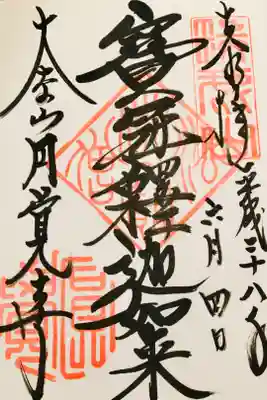 奉拝 平成二十八年
六月四日
寶冠釋迦如来
大本山円覚寺